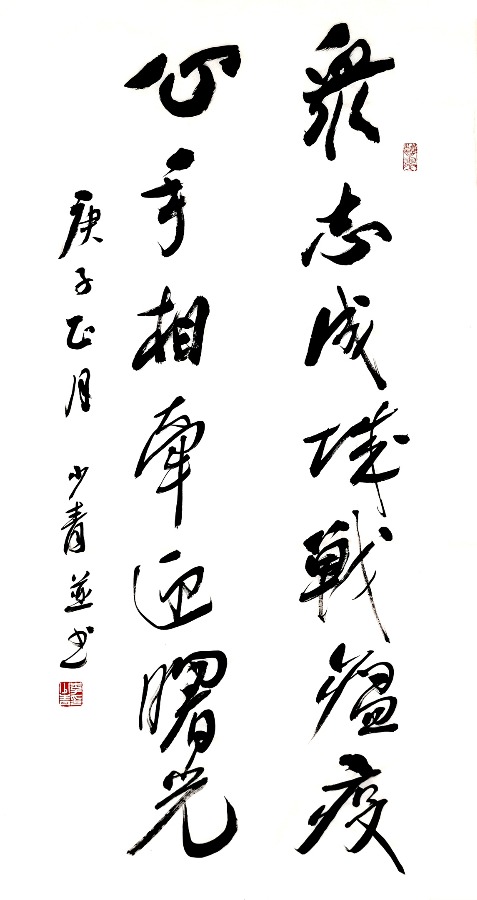 眾志成城戰瘟疫
心手相牽迎曙光
庚子正月 少青並书